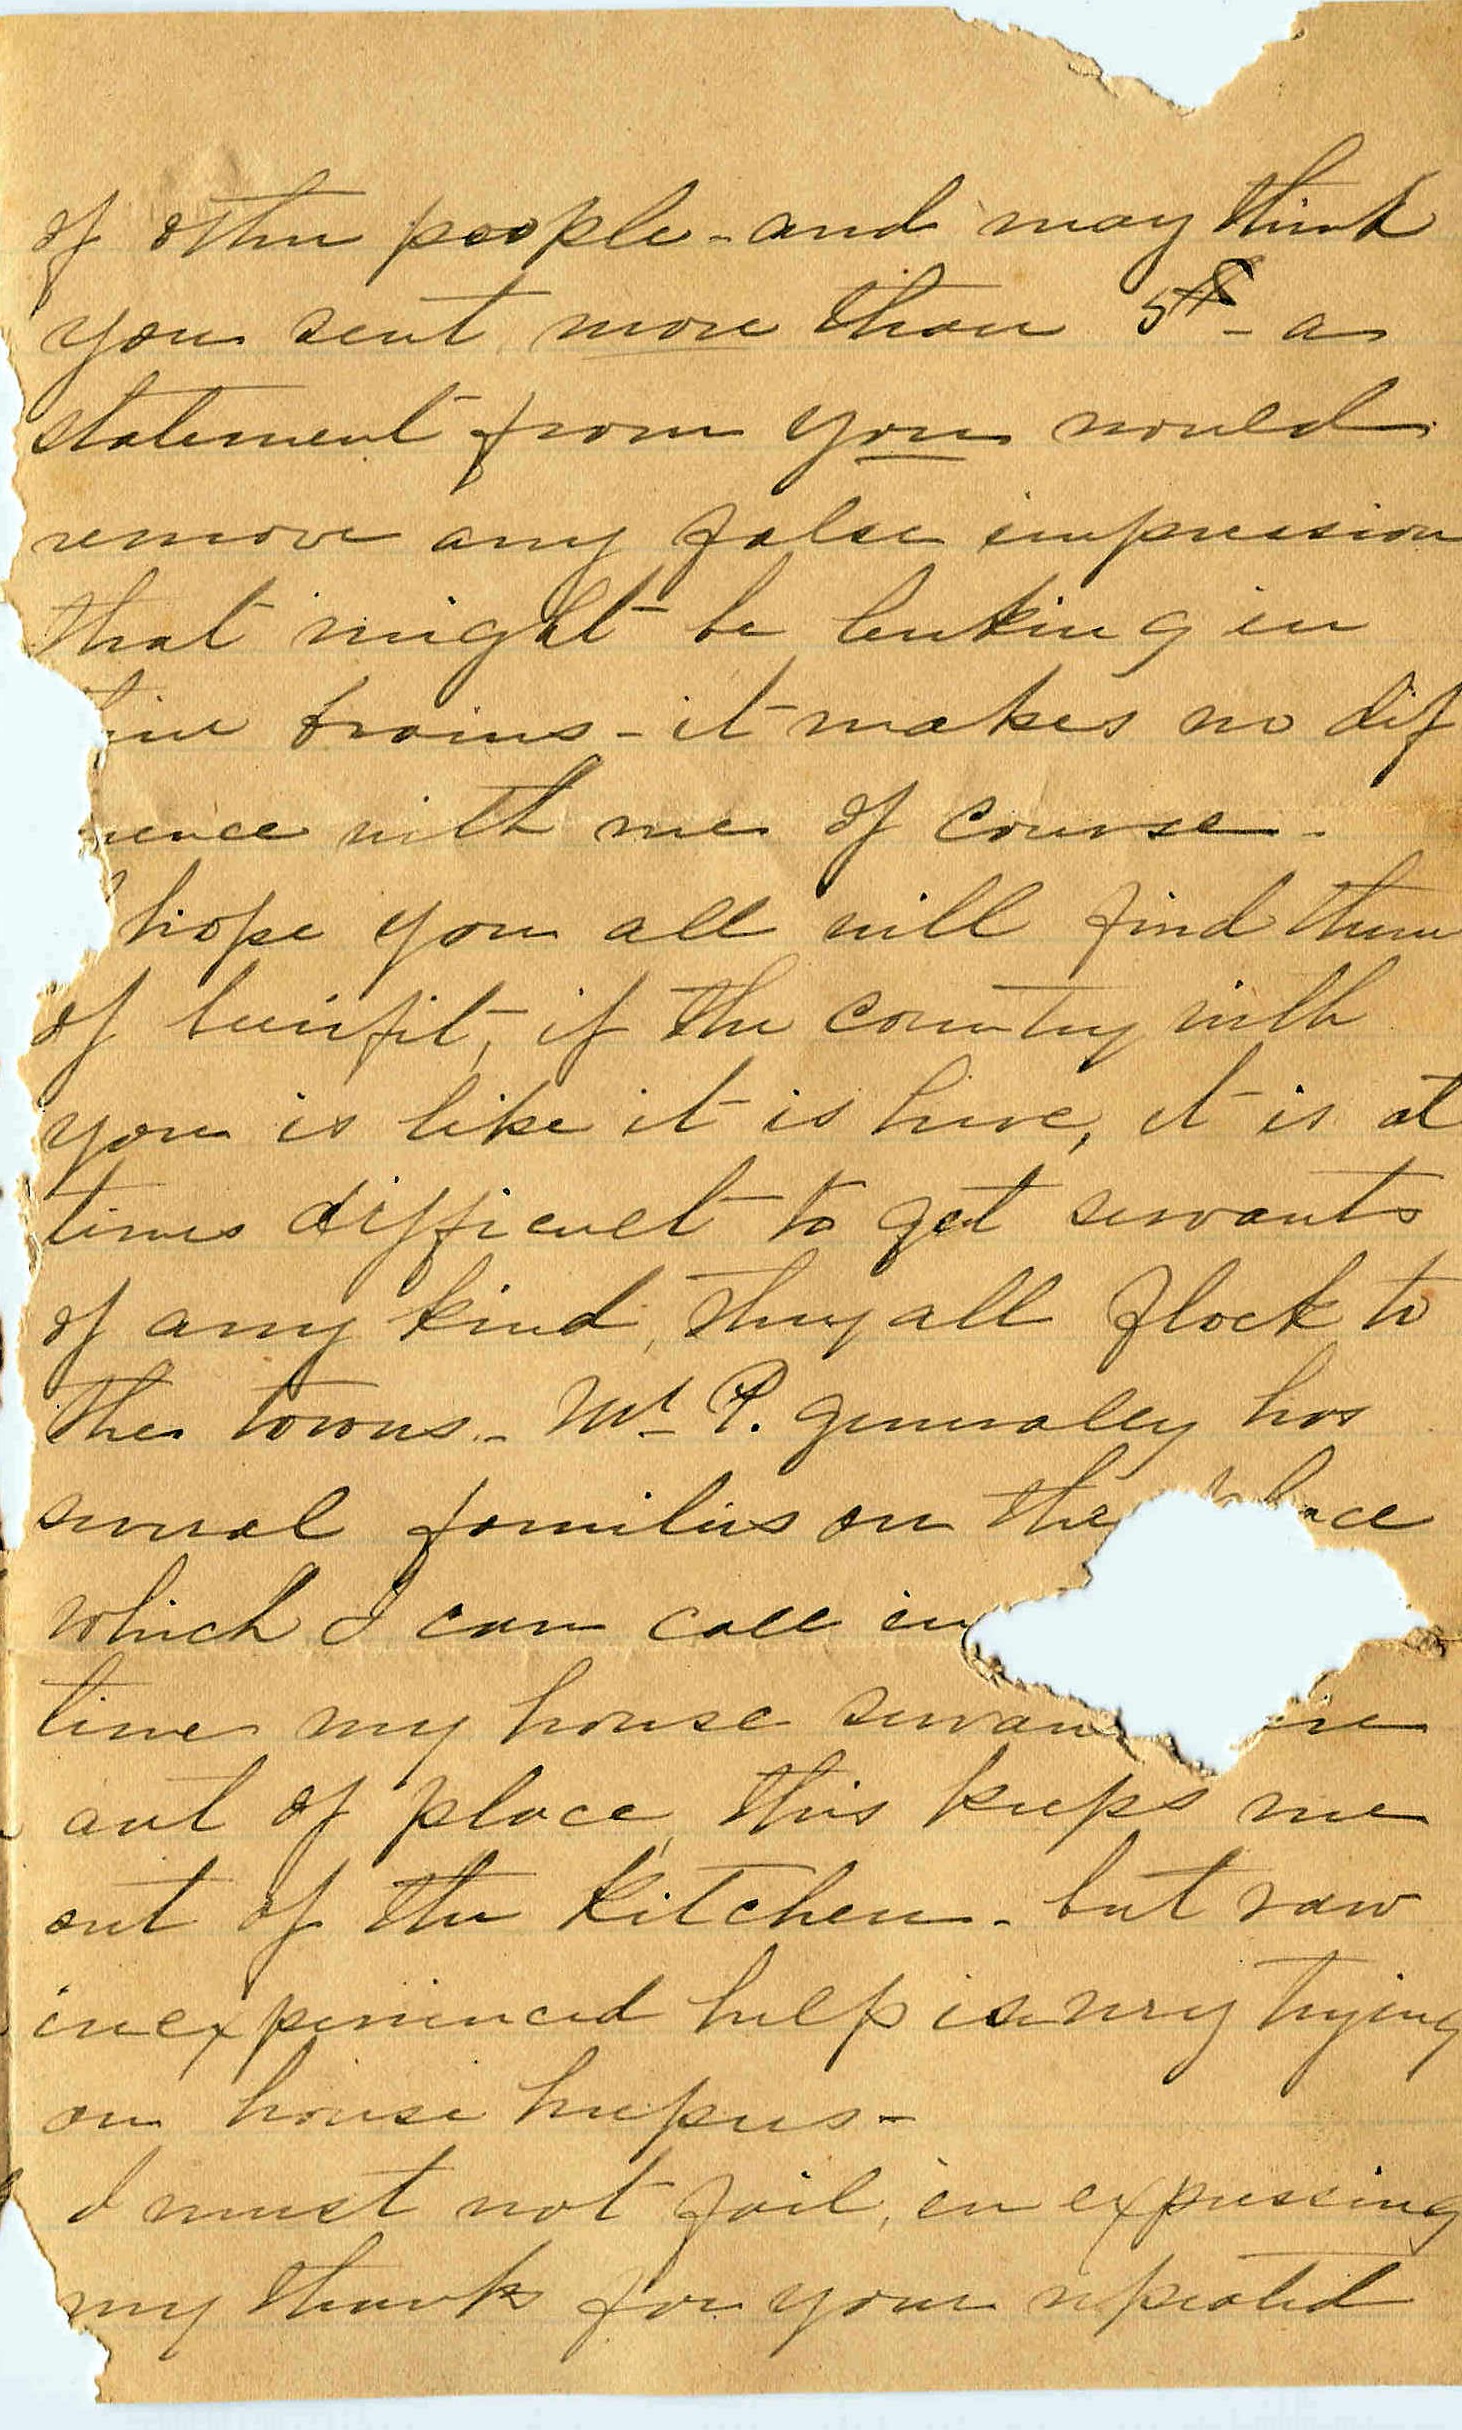 of other people - and may think
you sent more than 5 - a
statement from you would
remove any false impression
that might be lurking in
brains - it makes no dif
with me of course -
hope you all will find them
of benifit, if the country with
you is like it is here, it is at
times difficult to get servants
of any kind, they all flock to
the towns - Mr P. generaley has
several families on the
which I can call in
time my house
out of place, this keeps me
out of the kitchen - but raw
inexperienced help is very trying
on house keepers -
I must not fail, in expressing
my thanks for your repeated